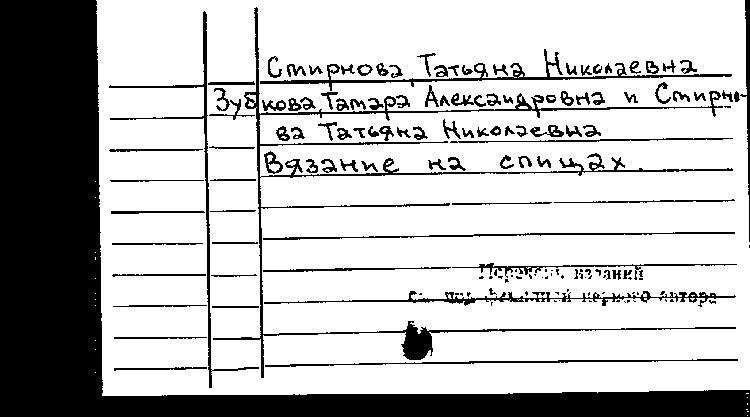 Смирнова, Татьяна Николаевна
Зубкова, Тамара Александровна и Смирно-
ва Татьяна Николаевна
Вязание на спицах.
Перечень изданий
см. под фамилией первого автора